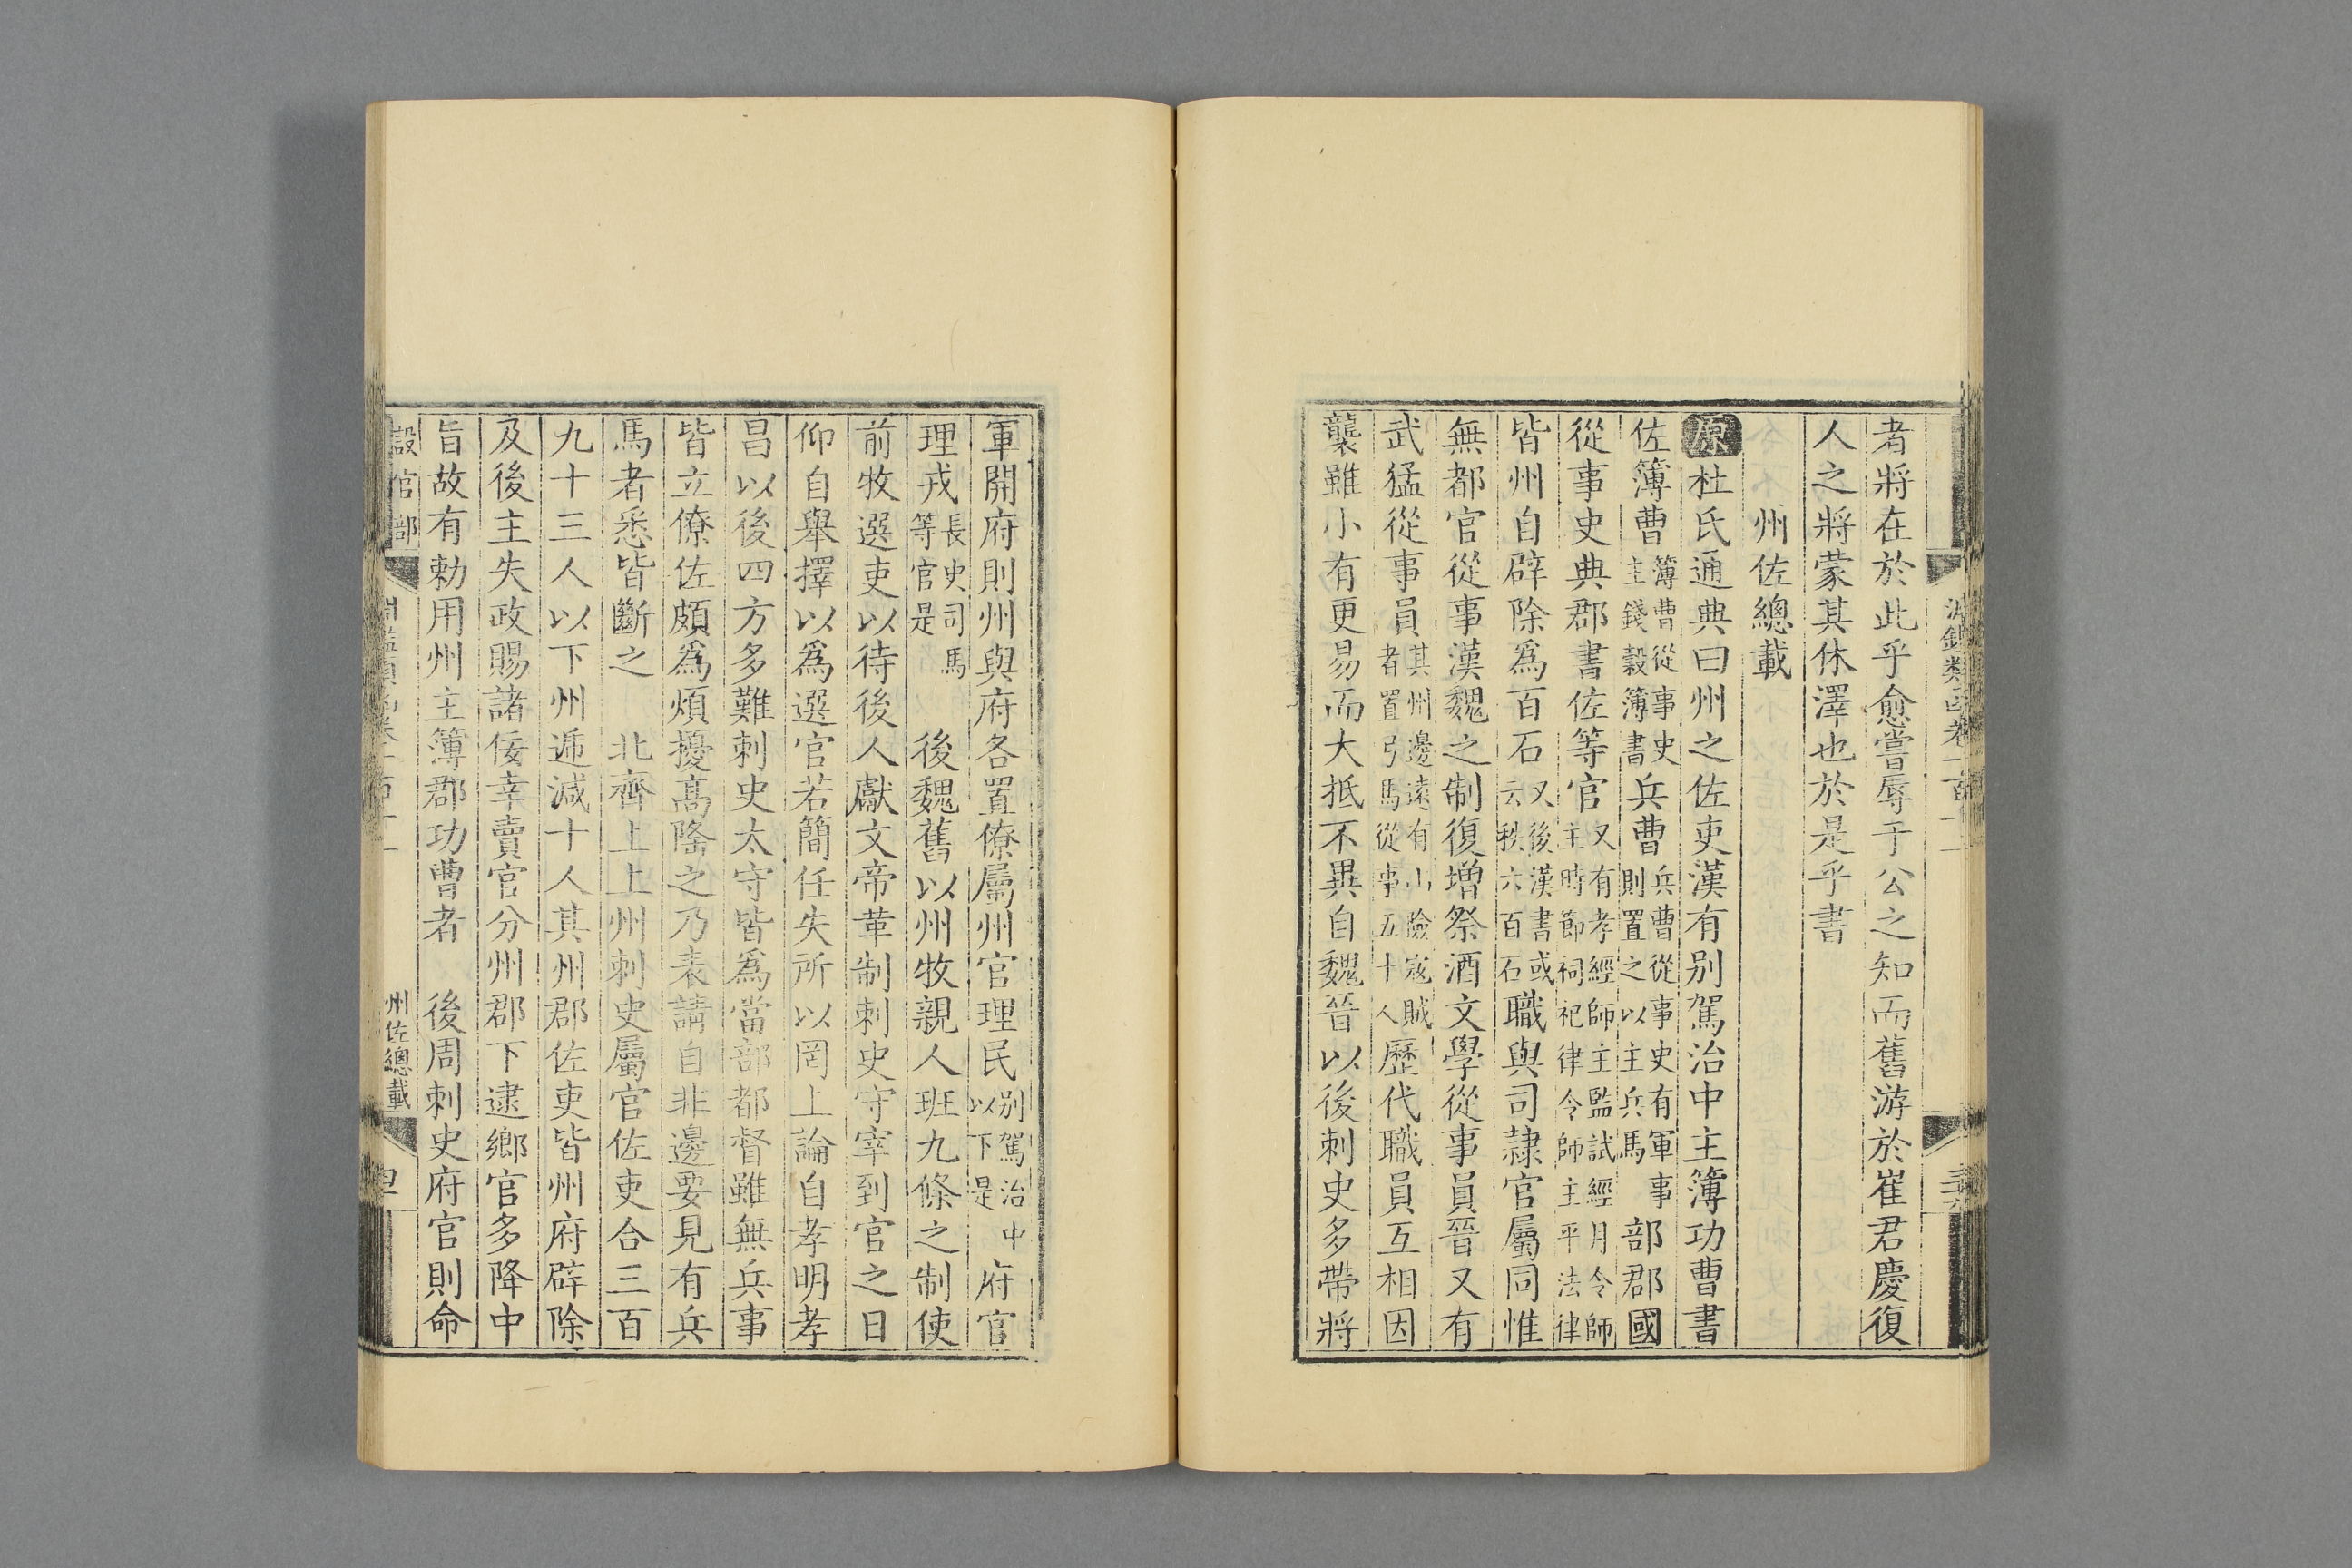 者將在於此乎愈嘗辱于公之知而舊游於崔君慶復
人之將蒙其休澤也於是乎書
州佐總載
原杜氏通典曰州之佐吏漢有别駕治中主簿功曹書
佐簿曹簿曹從事史主錢穀簿書兵曹兵曹從事史有軍事則置之以主兵馬部郡國
從事史典郡書佐等官又有孝經師主監試經月令師主時節祠祀律令師主平法律
皆州自辟除爲百石又後漢書或云秩六百石職與司隸官屬同惟
無都官從事漢魏之制復增祭酒文學從事員晉又有
武猛從事員其州邊遠有山險寇賊者置弓馬從事五十人歷代職員互相因
襲雖小有更易而大抵不異自魏晉以後刺史多帶將
軍開府則州與府各置僚屬州官理民别駕治中以下是府官
理戎長史司馬等官是後魏舊以州牧親人班九條之制使
前牧選吏以待後人獻文帝革制刺史守宰到官之日
仰自舉擇以爲選官若簡任失所以罔上論自孝明孝
昌以後四方多難刺史太守皆爲當部都督雖無兵事
皆立僚佐頗爲煩擾高隆之乃表請自非邊要見有兵
馬者悉皆斷之北齊上上州刺史屬官佐吏合三百
九十三人以下州遞減十人其州郡佐吏皆州府辟除
及後主失政賜諸佞幸賣官分州郡下逮鄉官多降中
旨故有勅用州主簿郡功曹者後周刺史府官則命
設官部
州佐總載